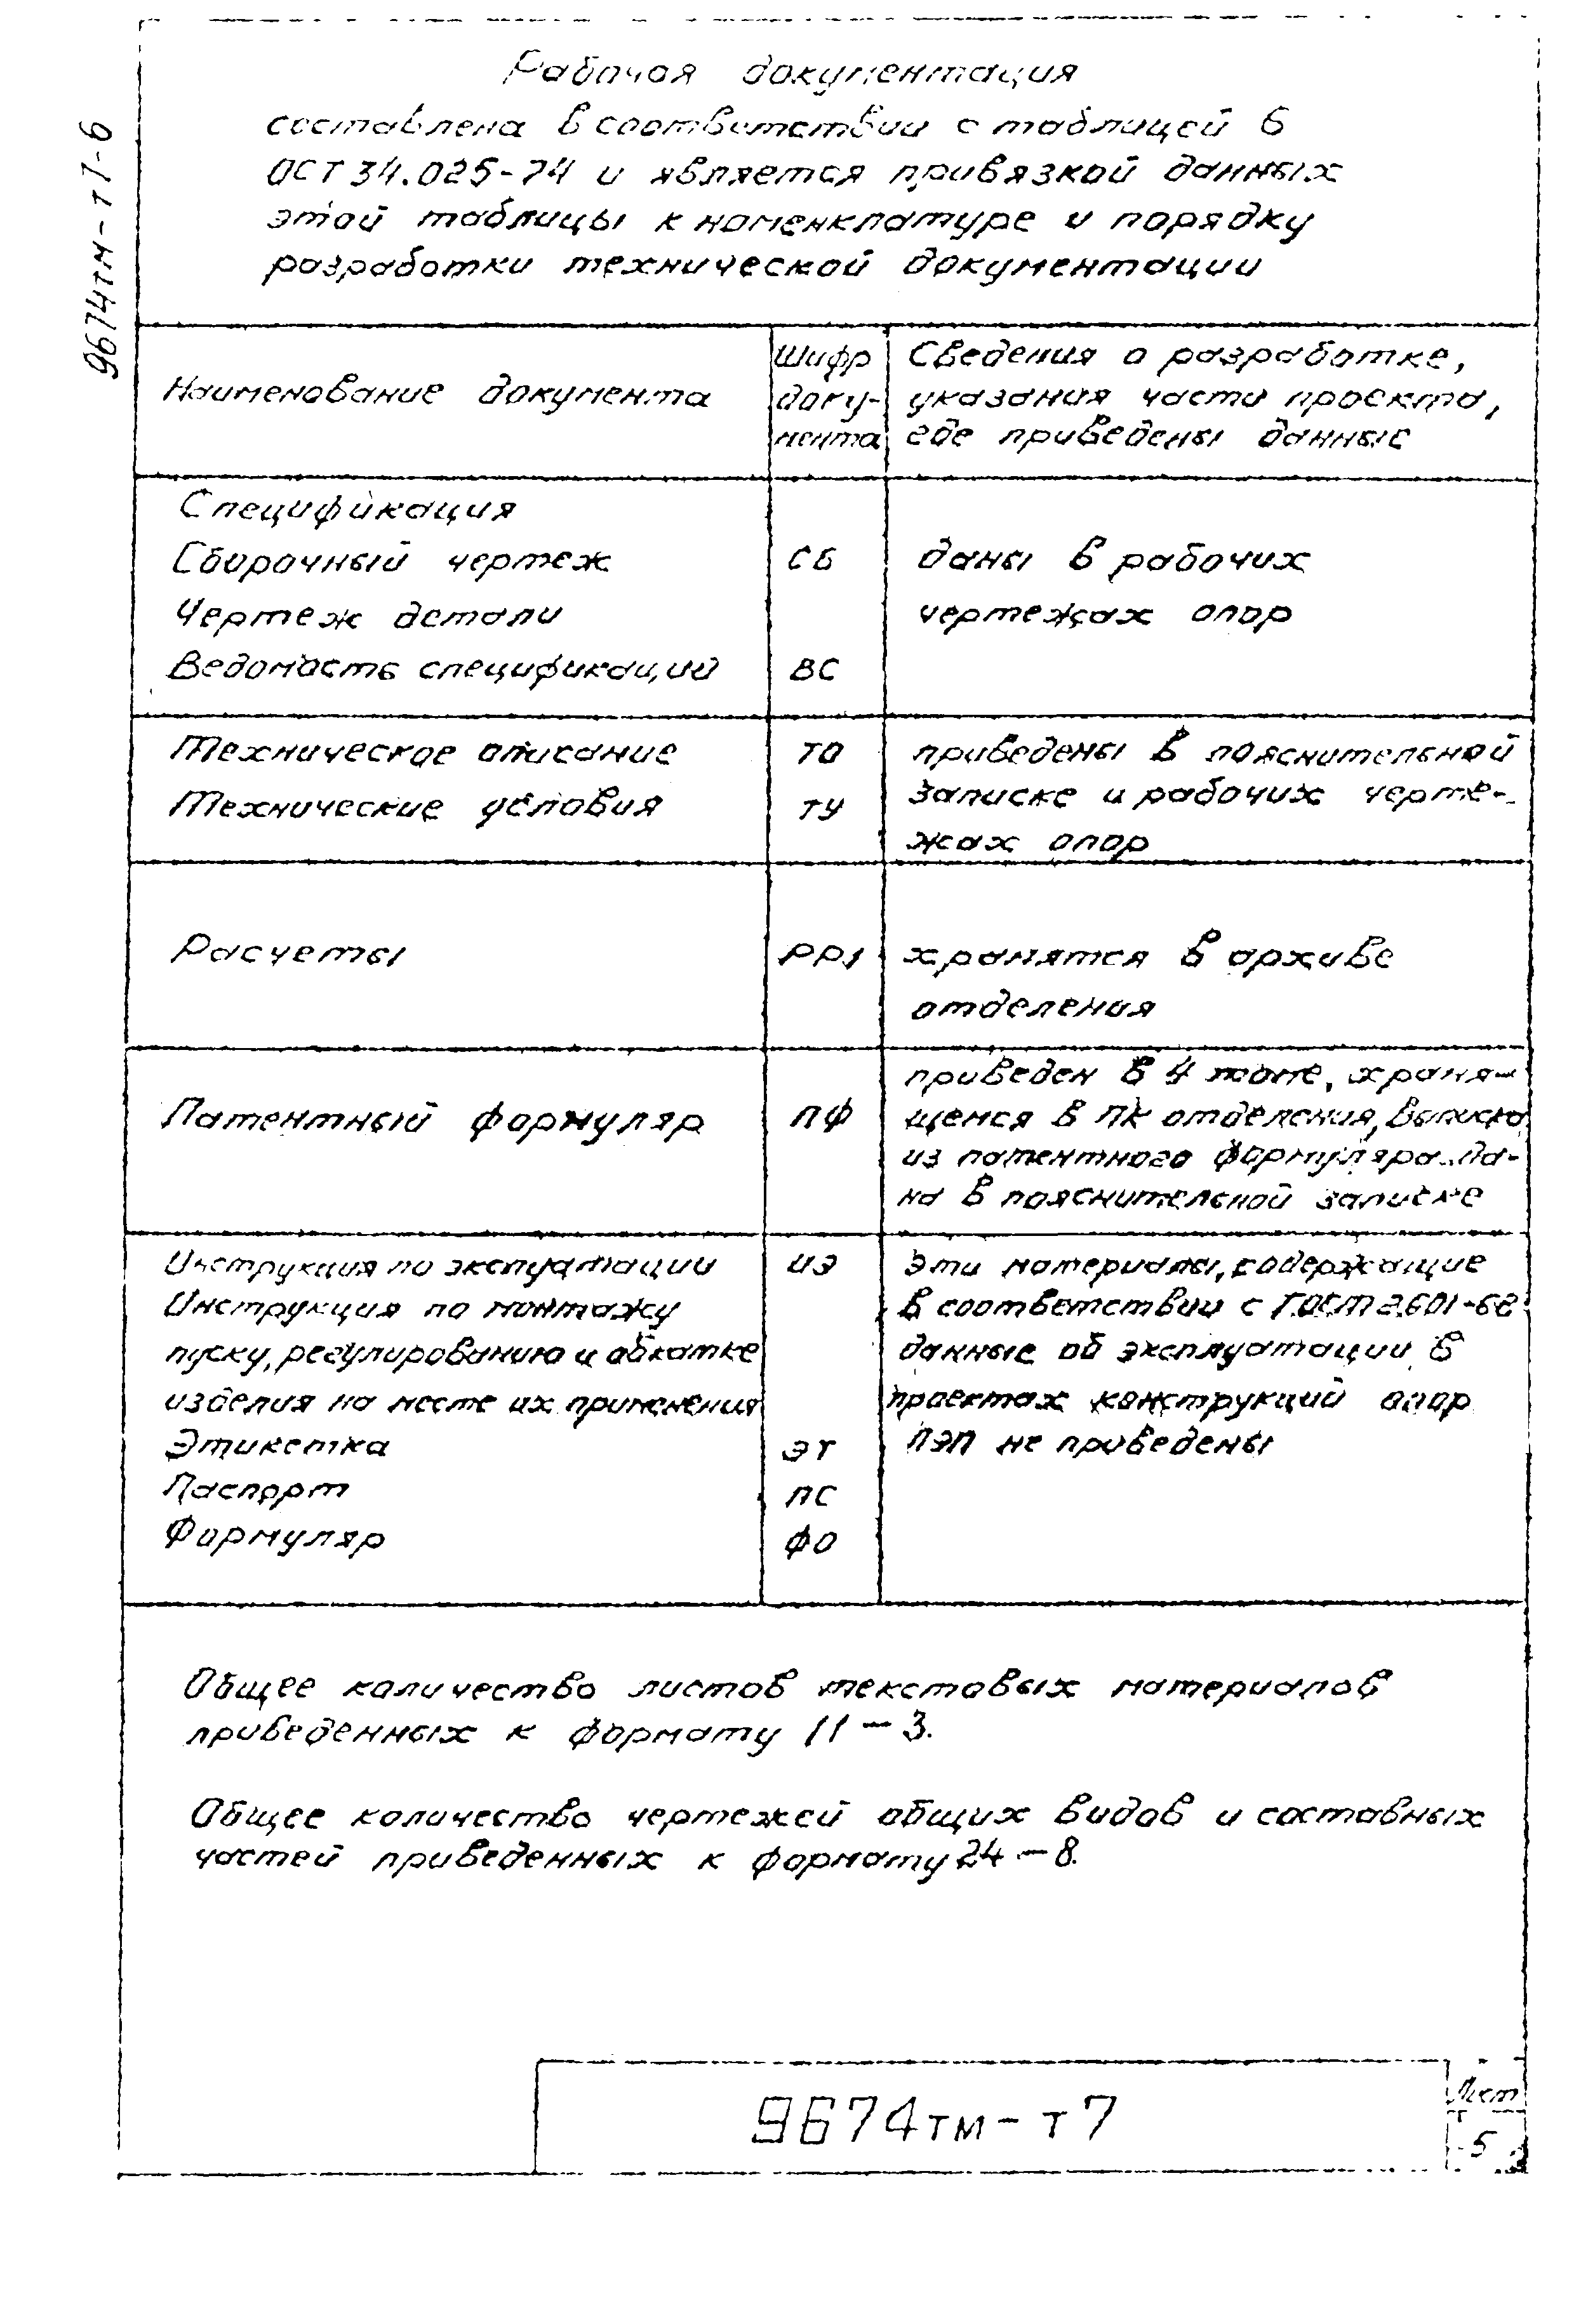 9674тм-т7-6
Рабочая документация
составлена в соответствии с таблицей 6
ОСТ 34.025-74 и является привязкой данных
этой таблицы к номенклатуре и порядку
разработки технической документации
Наименование документа
Шифр
доку-
мента
Сведения о разработке,
указания части проекта,
где приведены данные
Спецификация
Сборочный чертеж СБ даны в рабочих
Чертеж детали чертежах опор
Ведомость спецификаций ВС
Техническое описание ТО приведены в пояснительной
Технические условия ТУ записке и рабочих черте-
жах опор
Расчеты РР1 хранятся в архиве
отделения
Патентный формуляр ПФ
приведен в 4 томе, храня-
щемся в ПК отделения, выписка
из патентного формуляра да-
на в пояснительной записке
Инструкция по эксплуатации ИЭ
Инструкция по монтажу
пуску, регулированию и обкатке
изделия на месте их применения
Этикетка ЭТ
Паспорт ПС
Формуляр ФО
Эти материалы, содержащие
в соответствии с ГОСТ 2.601-68
данные об эксплуатации в
проектах конструкций опор
ЛЭП не приведены
Общее количество листов текстовых материалов
приведенных к формату 11 – 3.
Общее количество чертежей общих видов и составных
частей приведенных к формату 24 – 8.
9674тм-т7
Лист
5